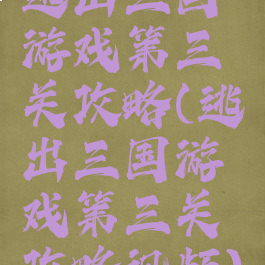 逃出三国
游戏第三
关攻略(逃
出三国游
戏第三关
攻略视频)